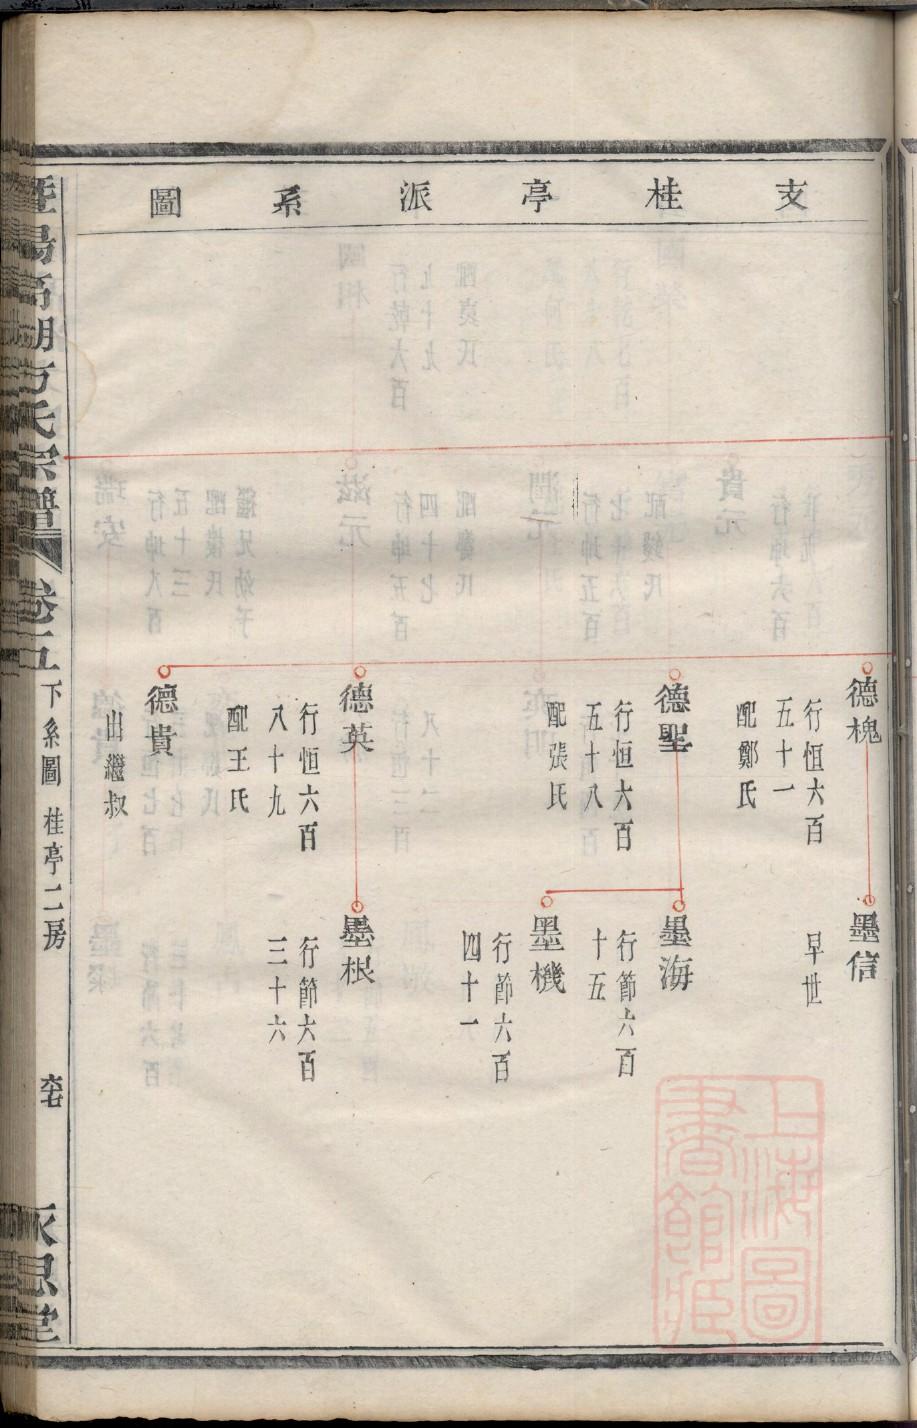 支桂亭派系圖
德槐
行恒六百
五十一
配鄭氏
墨信
早世
德聖
行恒六百
五十八
配張氏
墨海
行節六百
十五
墨機
行節六百
四十一
德英
行恒六百
八十九
配王氏
墨根
行節六百
三十六
德貴
出繼叔
暨陽高湖方氏宗譜
下系圖 桂亭二房
永思堂
上海圖書館藏